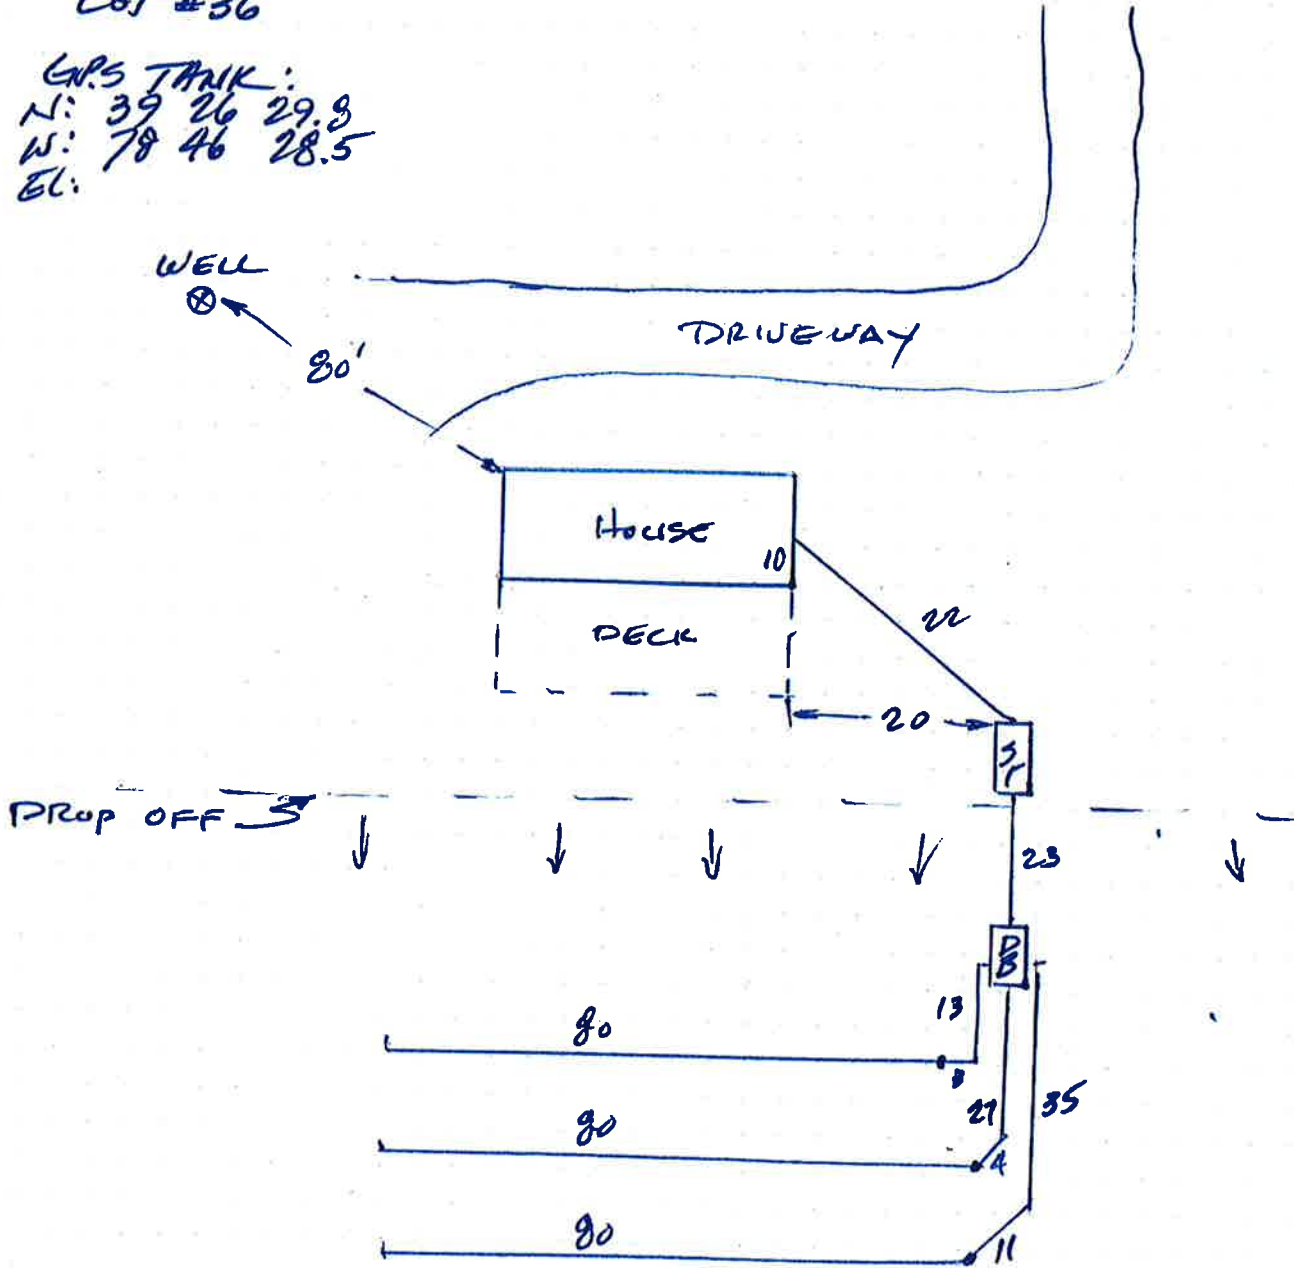 Lot #36
GPS TANK:
N: 39 26 29.8
W: 78 46 28.5
EL:
WELL
80'
DRIVEWAY
HOUSE
10
22
DECK
20
ST
DROP OFF
23
DB
13
80
8
27
35
80
4
80
11